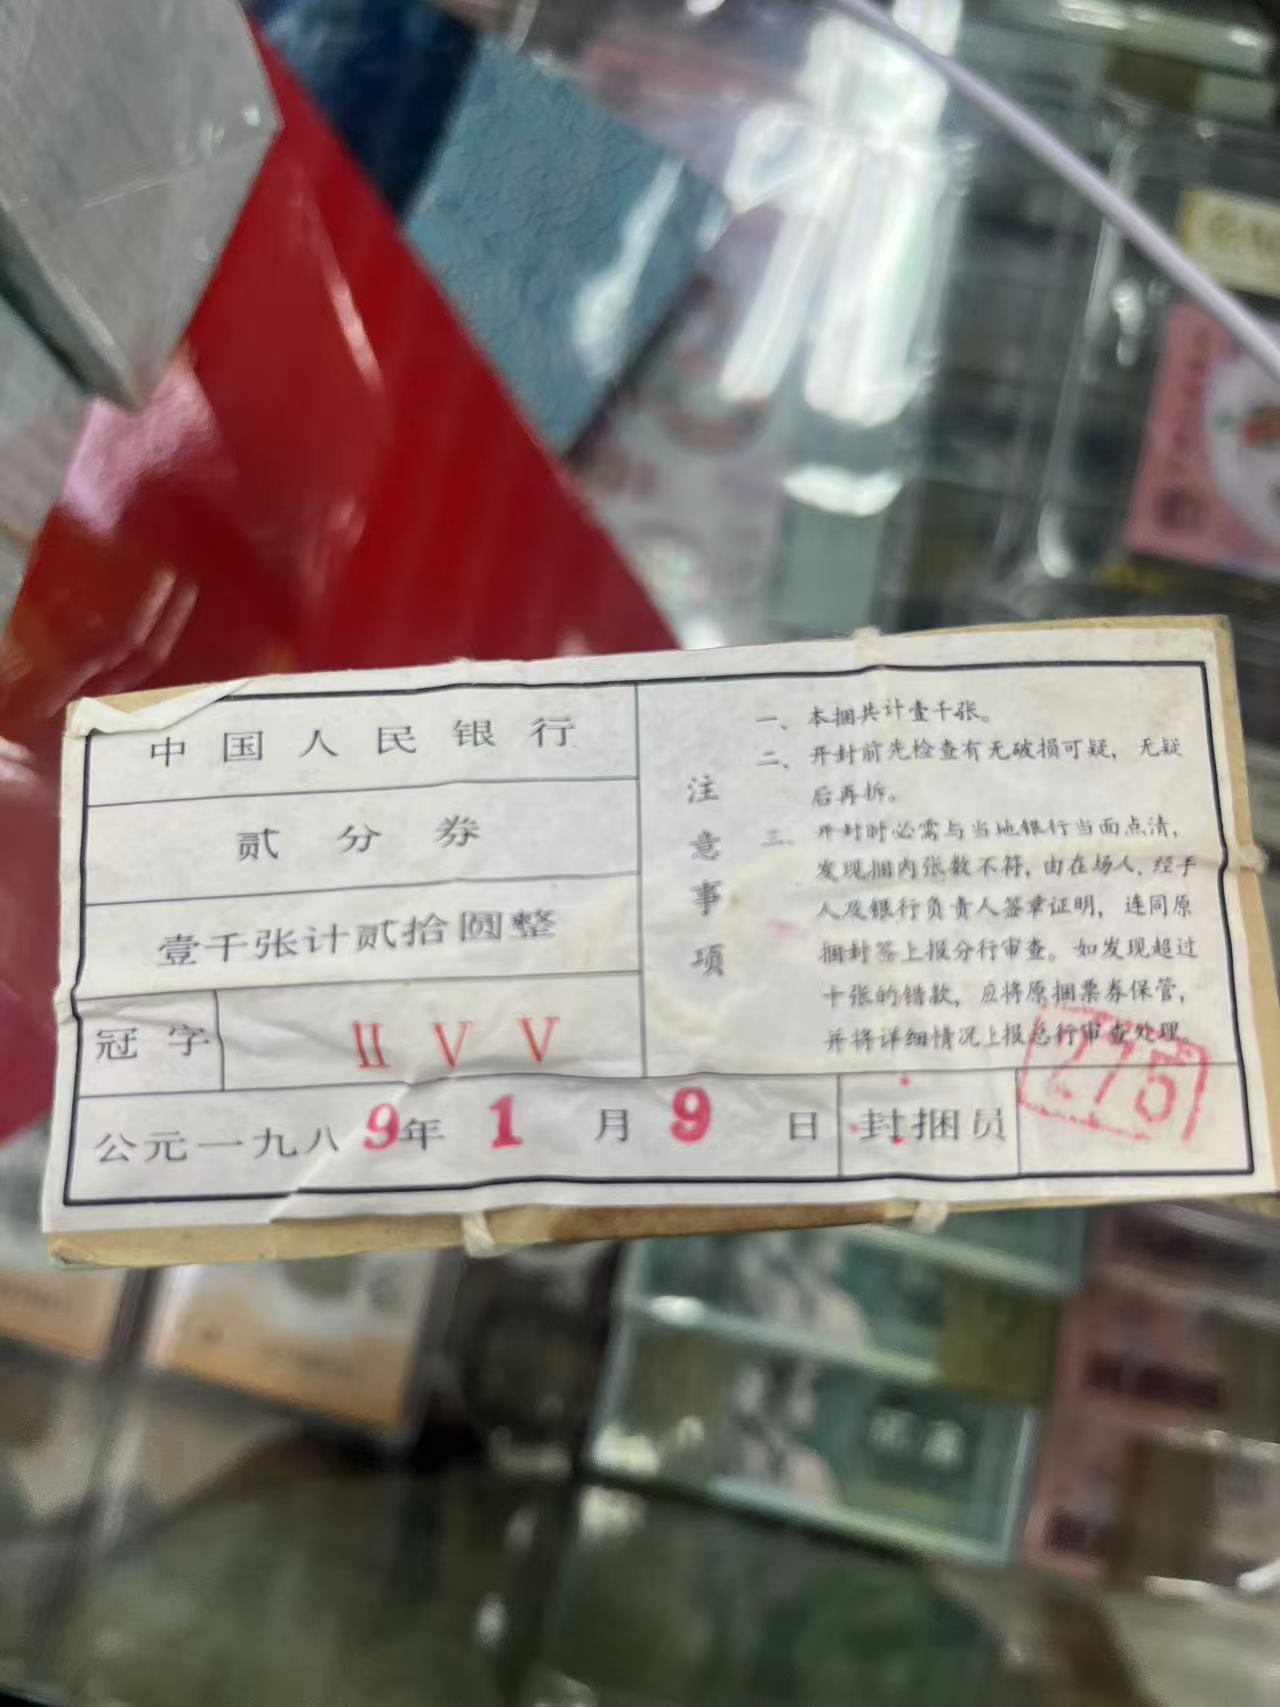 中国人民银行
贰分券
壹千张计贰拾圆整
冠字 II V V
公元一九八9年1月9日
注意事项
一、本捆共计壹千张。
二、开封前先检查有无破损可疑，无疑
后再拆。
三、开封时必需与当地银行当面点清，
发现捆内张数不符，由在场人、经手
人及银行负责人签章证明，连同原
捆封签上报分行审查。如发现超过
十张的错款，应将原捆票券保管，
并将详细情况上报总行审查处理。
封捆员
275